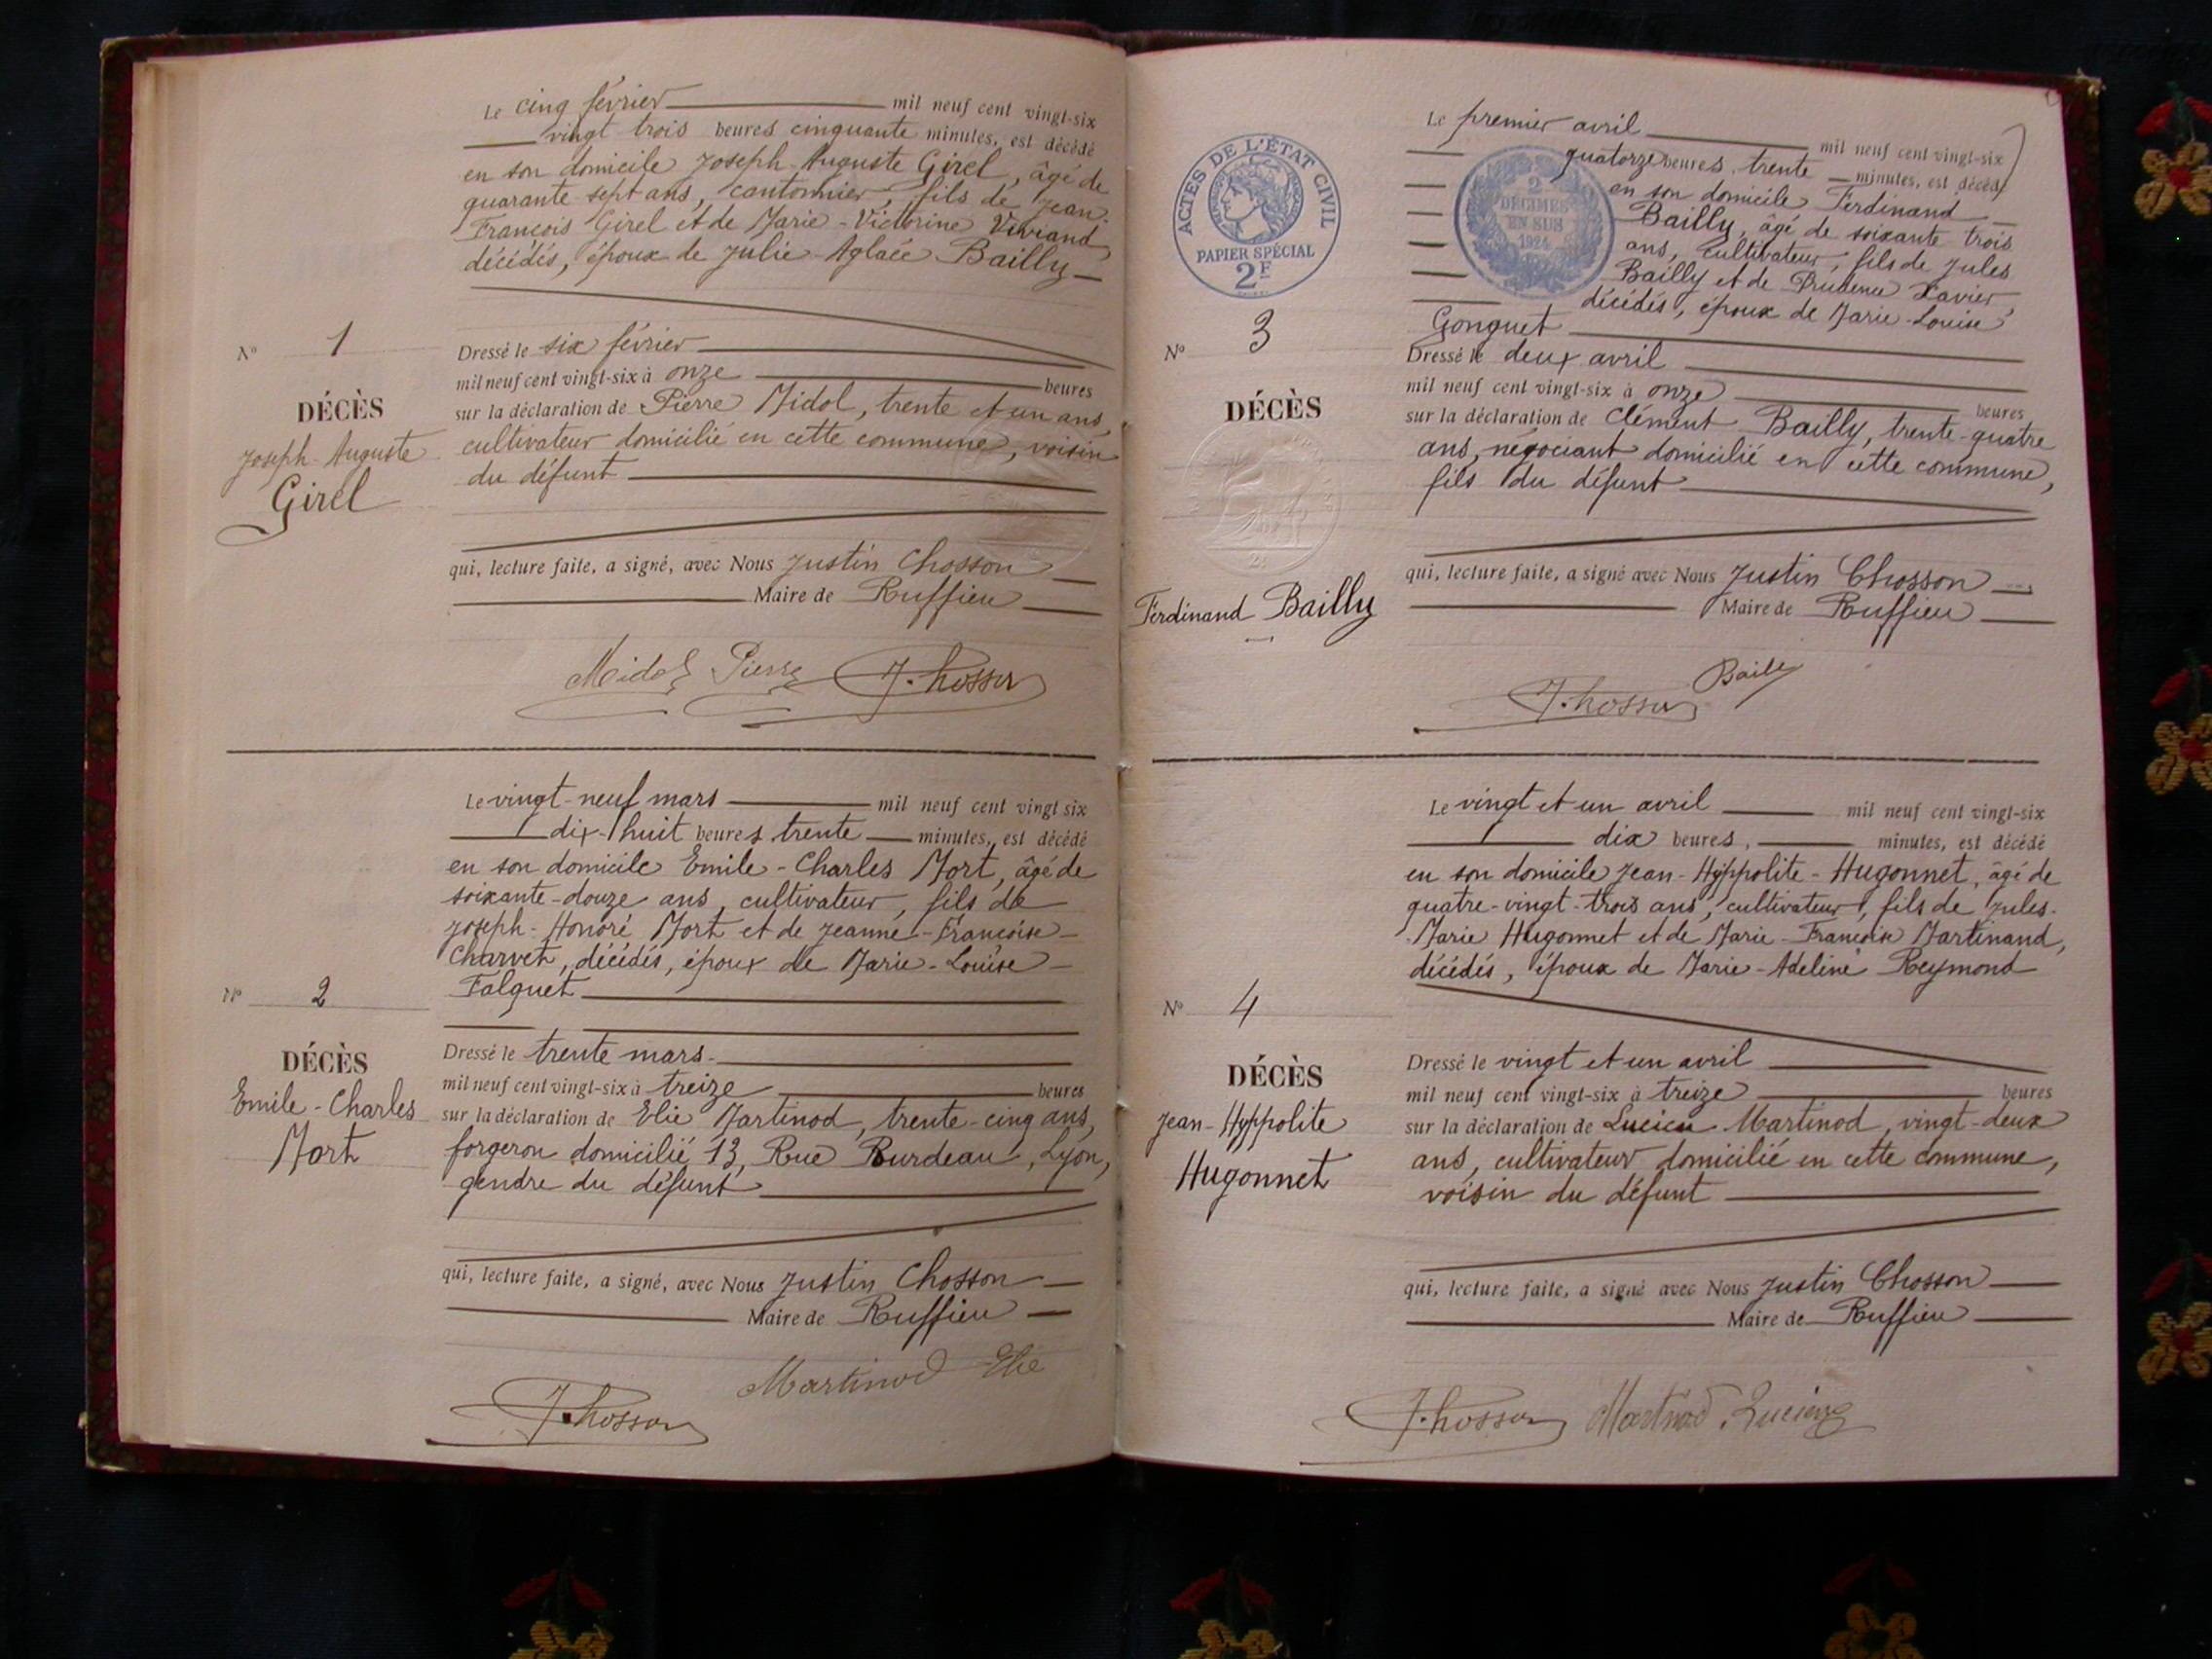 Le cinq février mil neuf cent vingt-six
vingt trois heures cinquante minutes, est décédé
en son domicile Joseph-Auguste Girel, âgé de
quarante sept ans, cantonnier, fils de Jean-
François Girel et de Marie-Victorine Viviand,
décédés, époux de Julie-Aglaée Bailly
N° 1
DÉCÈS
Joseph-Auguste
Girel
Dressé le six février
mil neuf cent vingt-six à onze heures
sur la déclaration de Pierre Midol, trente et un ans,
cultivateur domicilié en cette commune, voisin
du défunt
qui, lecture faite, a signé, avec Nous Justin Chosson
Maire de Ruffieu
Midol Pierre J. Chosson
Le vingt-neuf mars mil neuf cent vingt six
dix-huit heures trente minutes, est décédé
en son domicile Emile-Charles Mort, âgé de
soixante-douze ans, cultivateur, fils de
Joseph-Honoré Mort et de Jeanne-Françoise
Charvet, décédés, époux de Marie-Louise
Falquet
N° 2
DÉCÈS
Emile-Charles
Mort
Dressé le trente mars
mil neuf cent vingt-six à treize heures
sur la déclaration de Elie Martinod, trente-cinq ans,
forgeron domicilié 13, Rue Burdeau, Lyon,
gendre du défunt
qui, lecture faite, a signé, avec Nous Justin Chosson
Maire de Ruffieu
Martinod Elie
J. Chosson
ACTES DE L'ÉTAT CIVIL
PAPIER SPÉCIAL
2F
2
DÉCIMES
EN SUS
1924
Le premier avril mil neuf cent vingt-six
quatorze heures trente minutes, est décédé
en son domicile Ferdinand
Bailly, âgé de soixante trois
ans, cultivateur, fils de Jules
Bailly et de Prudence Xavier
décédés, époux de Marie-Louise
Gonguet
N° 3
DÉCÈS
Ferdinand Bailly
Dressé le deux avril
mil neuf cent vingt-six à onze heures
sur la déclaration de Clément Bailly, trente-quatre
ans, négociant domicilié en cette commune,
fils du défunt
qui, lecture faite, a signé avec Nous Justin Chosson
Maire de Ruffieu
Bailly
J. Chosson
Le vingt et un avril mil neuf cent vingt-six
dix heures, minutes, est décédé
en son domicile Jean-Hyppolite-Hugonnet, âgé de
quatre-vingt-trois ans, cultivateur, fils de Jules-
Marie Hugonnet et de Marie-Françoise Martinand,
décédés, époux de Marie-Adeline Reymond
N° 4
DÉCÈS
Jean-Hyppolite
Hugonnet
Dressé le vingt et un avril
mil neuf cent vingt-six à treize heures
sur la déclaration de Lucien Martinod, vingt-deux
ans, cultivateur domicilié en cette commune,
voisin du défunt
qui, lecture faite, a signé avec Nous Justin Chosson
Maire de Ruffieu
J. Chosson Martinod Lucien